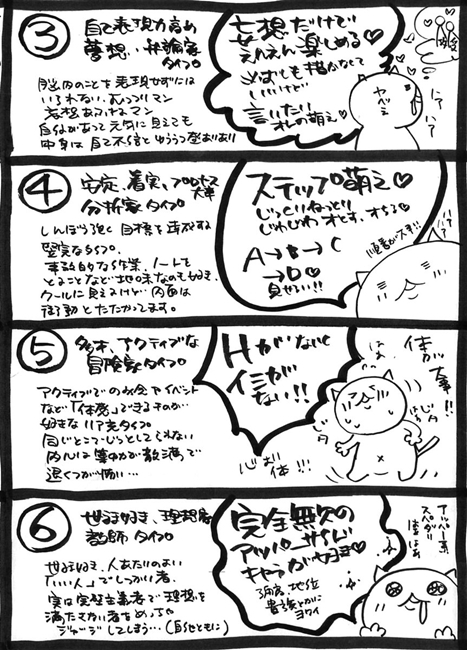 ③
自己表現力高め
夢想、芸術家
タイプ
脳内のことを表現せずには
いられない、むっつりマン
妄想あふれるマン
自信があって元気に見えても
中身は自己不信とゆううつ癖ありあり
妄想だけで
ぜんぜん楽しめる♡
いいけど
言いたい
オレの萌え♡
ヤベェ
にア!
にア!
④
安定、着実、プロセス大事
分析家タイプ
しんぼう強く目標を達成する
堅実なタイプ。
事務的な作業、ノートを
とることなど地味なのも好き。
クールに見えるけど内面は
衝動とたたかってます。
ステップ萌え♡
じっくりねっとり
じわじわオとす、オちる♡
A→B→C
→D♡
見せろ!!!
順番が大事!!
⑤
多才、アクティブな
冒険家タイプ
アクティブでお金やイベント
など「体感」できるものが
好きなリア充タイプ
同じところでじっとしてられない
内心は集中力が散漫で
退くつが怖い…
Hがないと
イミが
ない!!
体が
大事!!
はぁ
ジタ
ジタ
体!!!
⑥
世話好き、理想家
教師タイプ
世話好き、人あたりのよい
「いい人」でしっかり者、
実は完璧主義者で理想を
満たさない者をめっちゃ
ジャッジしてしまう…(自分ともに)
完全無欠の
アッパーサイド
キャラが好き♡
名声、地位
最強とかに
ヨワイ
アッパー系
スパダリ
はぁはぁ